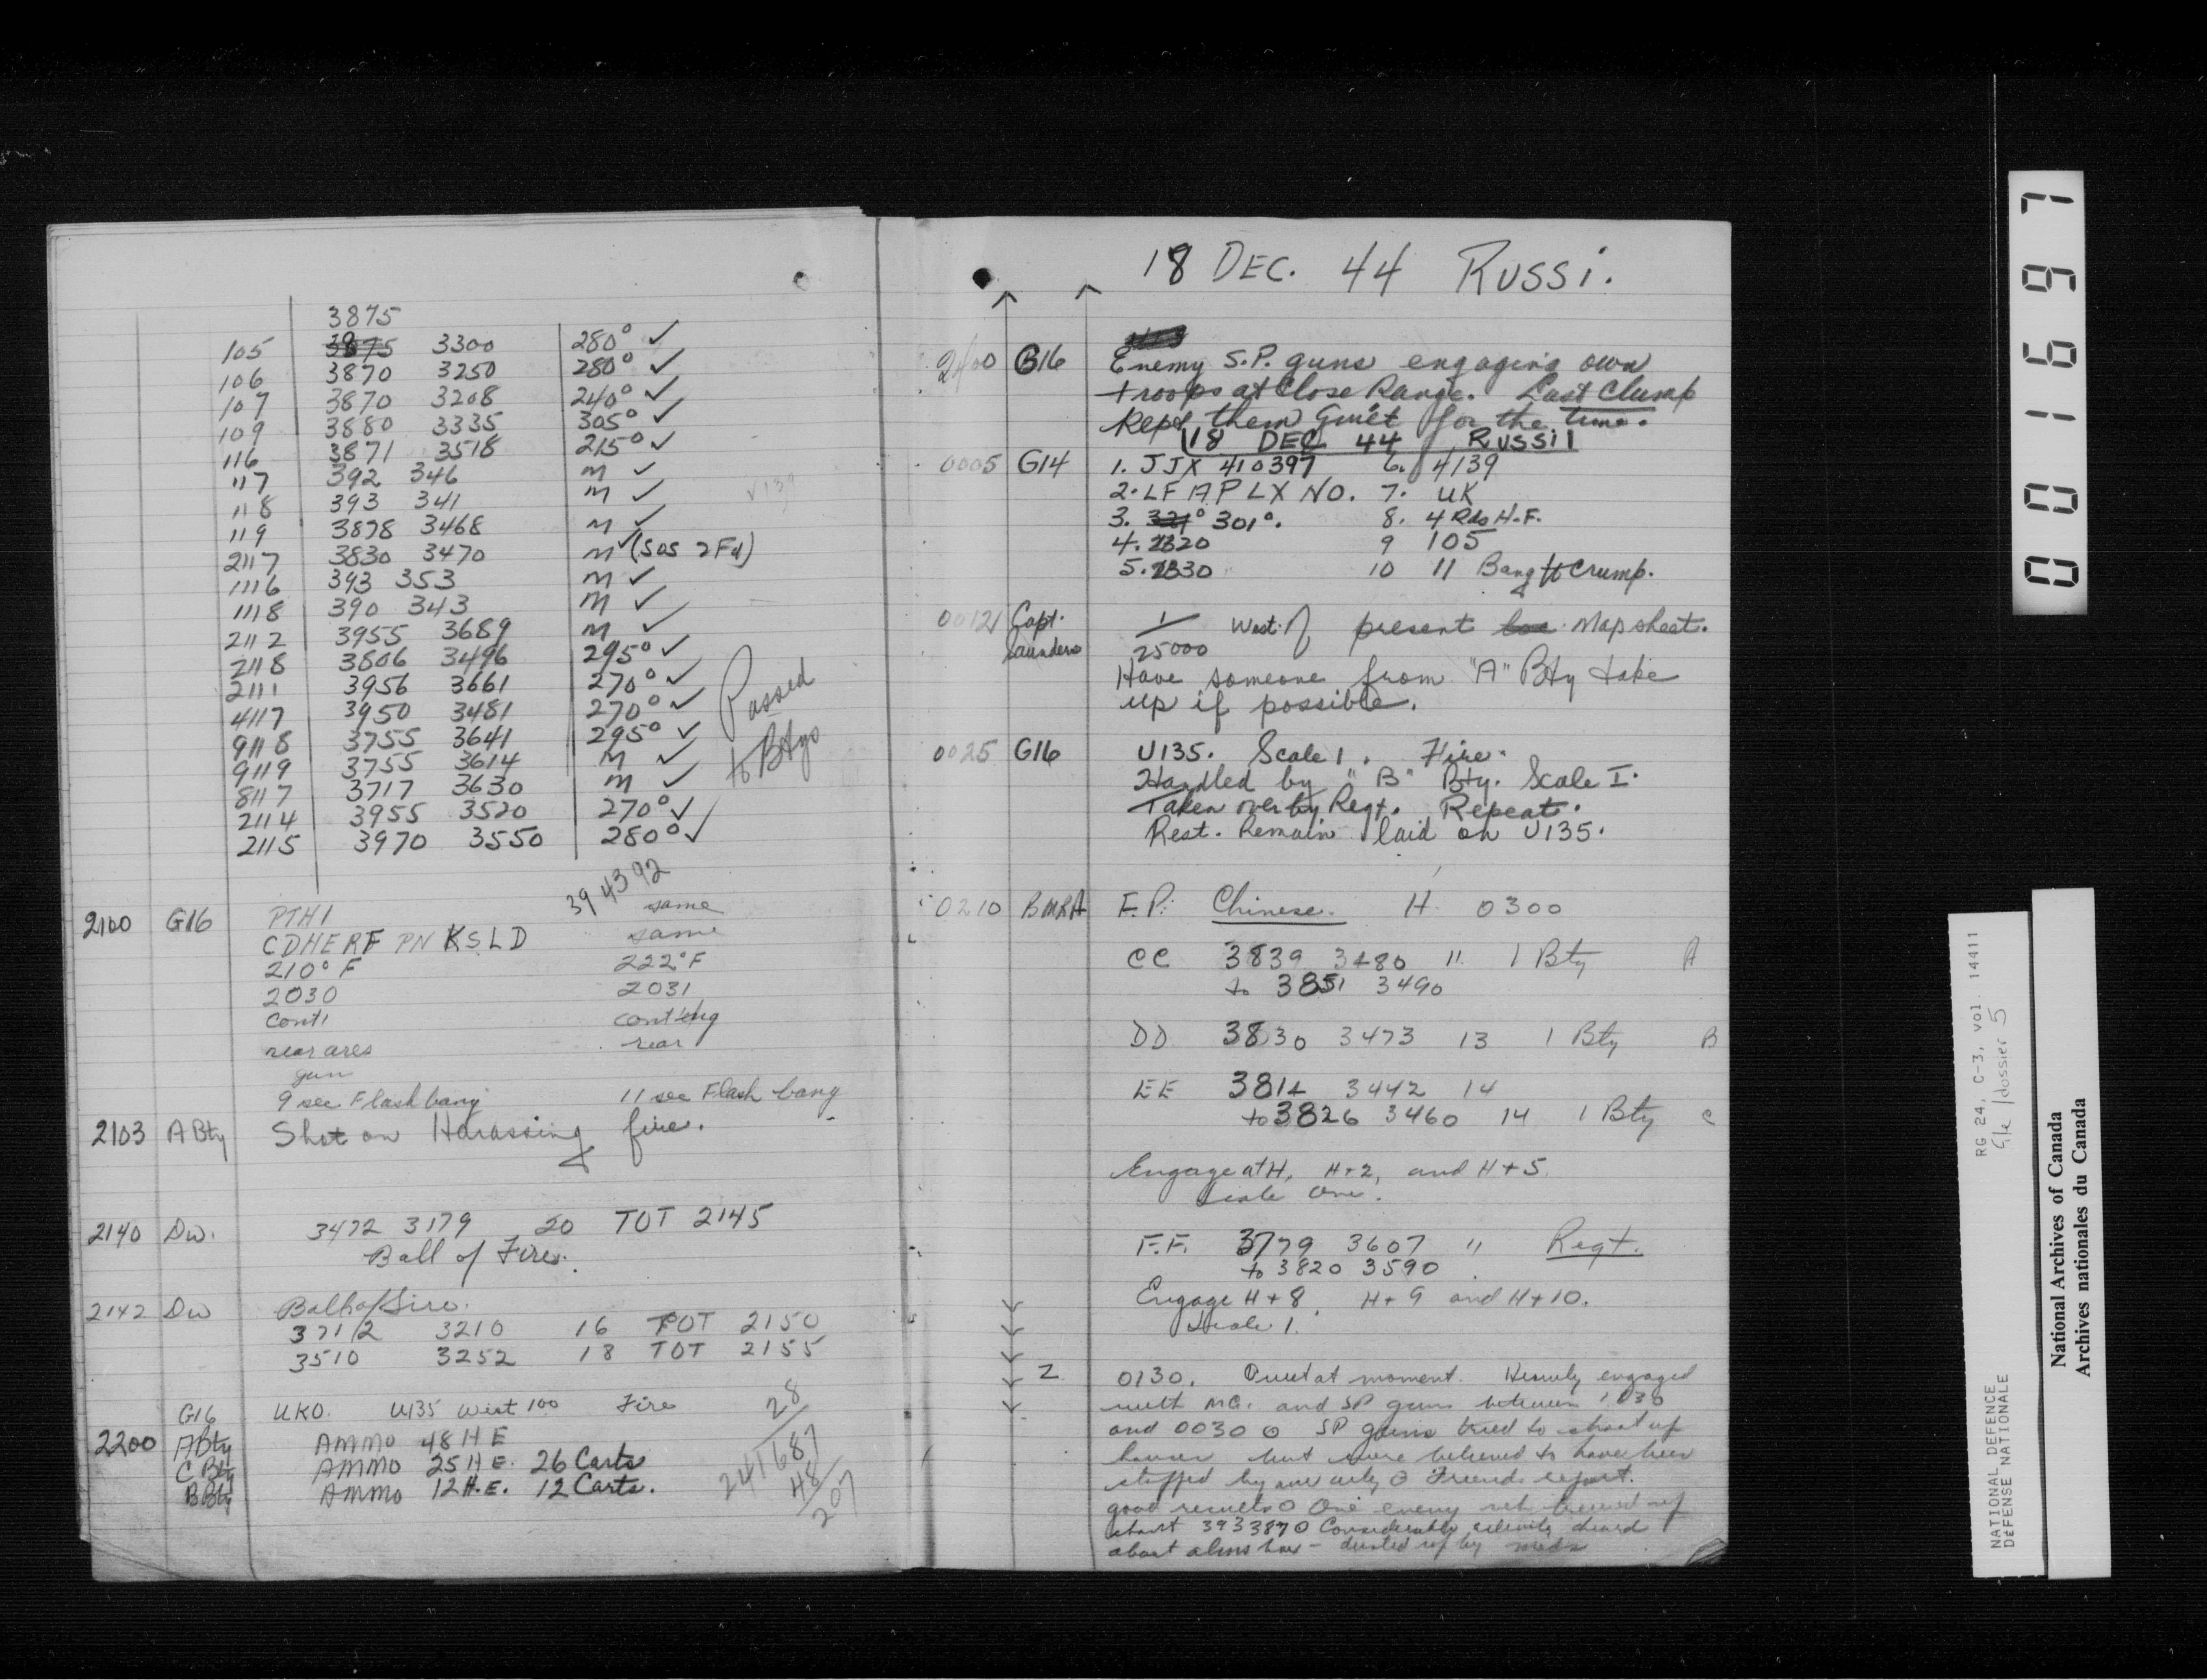 3875
105 3875 3300 280° ✓
106 3870 3250 280° ✓
107 3870 3208 240° ✓
109 3880 3335 305° ✓
116 3871 3518 215° ✓
117 392 346 m ✓
118 393 341 m ✓
119 3878 3468 m ✓
2117 3830 3470 m ✓ (SOS 2Fd)
1116 393 353 m ✓
1118 390 343 m ✓
2112 3955 3689 m ✓
2118 3806 3496 295° ✓
2111 3956 3661 270° ✓
4117 3950 3481 270° ✓
9118 3755 3641 295° ✓
9119 3755 3614 m ✓
8117 3717 3630 m ✓
2114 3955 3520 270° ✓
2115 3970 3550 280° ✓
Passed
to Btys
394392
2100 G16 PTH1 same
CDHERF PN KSLD same
210° F 222° F
2030 2031
cont'
rear area rear
gun
9 sec Flash bang 11 sec Flash bang
2103 A Bty Shot on Harassing fire.
2140 Dw. 3472 3179 20 TOT 2145
Ball of Fire.
2142 Dw Ball of Fire.
3712 3210 16 TOT 2150
3510 3252 18 TOT 2155
G16 UKO. U135 West 100 Fire
2200 A Bty AMMO 48 HE
C Bty AMMO 25 H.E. 26 Carts
B Bty AMMO 12 H.E. 12 Carts.
28
241687
48
207
18 DEC. 44 RUSSI.
2400 G16 Enemy S.P. guns engaging own
troops at Close Range. Last Clump
kept them quiet for the time.
18 DEC 44 RUSSI
0005 G14 1. JJX 410397 6. 4139
2. LF A P LX NO. 7. UK
3. 321° 301°. 8. 4 Rds H.F.
4. 2320 9 105
5. 2330 10 11 Bang to Crump.
0012 Capt. 1/25000 West of present loc. Map sheet.
Saunders
Have someone from "A" Bty take
up if possible.
0025 G16 U135. Scale 1. Fire.
Handled by "B" Bty. Scale I.
Taken over by Regt. Repeat.
Rest. Remain laid on U135.
0210 BMRA F.P. Chinese. H 0300
CC 3839 3480 11 1 Bty A
to 3851 3490
DD 3830 3473 13 1 Bty B
EE 3814 3442 14
to 3826 3460 14 1 Bty C
Engage at H, H+2, and H+5.
Scale One.
F.F. 3779 3607 11 Regt.
to 3820 3590
Engage H+8, H+9 and H+10.
Scale 1.
Z 0130. Quiet at moment. Heavily engaged
with MG. and SP guns between
and 0030 o SP guns tried to shoot up
houses but were believed to have been
stopped by our arty o Friends report.
good results o One enemy
about 393387 o Considerable activity heard
about
001697
NATIONAL DEFENCE
DÉFENSE NATIONALE
RG 24, C-3, vol. 14411
file/dossier 5
National Archives of Canada
Archives nationales du Canada